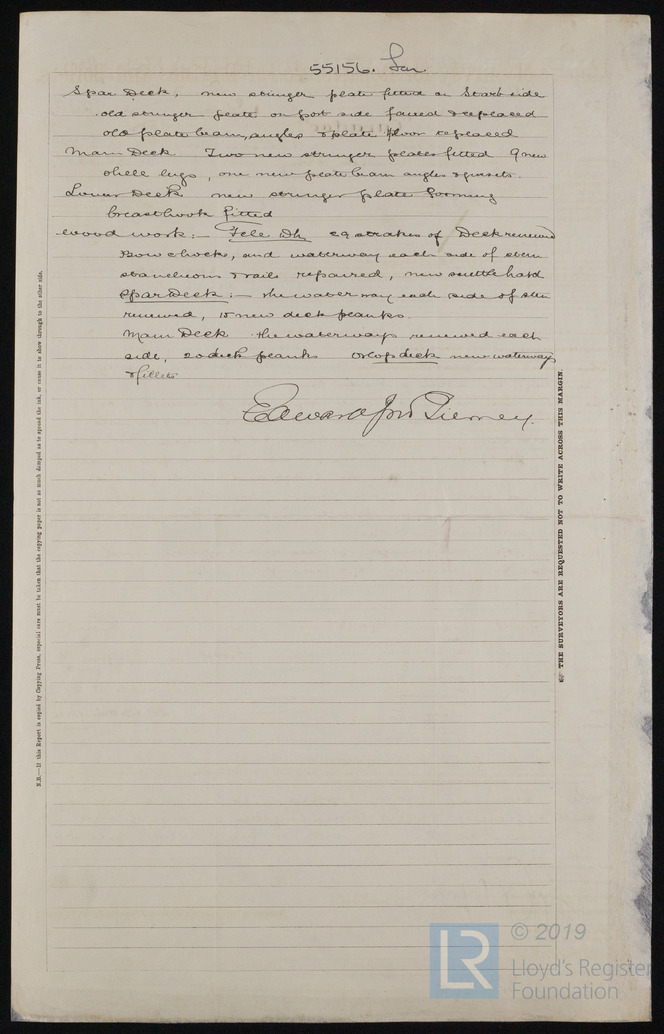 55156. Lon.
Spar Deck, new stringer plate fitted on Starb side
old stringer plate on port side faired & replaced
old plate beam, angles & plate floor replaced
Main Deck Two new stringer plates fitted 9 new
shell lugs, one new plate beam angles & gussets.
Lower Deck new stringer plate forming
breasthook fitted
Wood work:- Fcle Dk strakes of Deck renewed
Bow chocks, and waterway each side of stem
stanchions & rails repaired, new scuttle hatch
Spar Deck:- the water way each side of stem
renewed, 15 new deck planks.
Main Deck the waterways renewed each
side, 20 deck planks Orlop deck new waterways
& fillets
Edward Jno Tierney.
N.B.—If this Report is copied by Copying Press, especial care must be taken that the copying paper is not so much damped as to spread the ink, or cause it to show through to the other side.
THE SURVEYORS ARE REQUESTED NOT TO WRITE ACROSS THIS MARGIN.
LR
© 2019
Lloyd's Register
Foundation